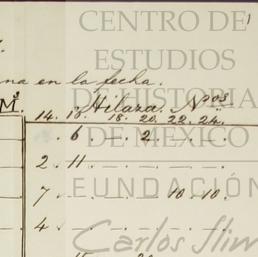 CENTRO DE
ESTUDIOS
na en la fecha.
DE HISTORIA
M.ª Hilaza. Nºos
14. 16. 18. 20. 22. 24.
DE MÉXICO
6. — . 2. — . — .
2. 11. — . — . — . — .
FUNDACIÓN
7. — . — . — . 10. 10.
4. — . — . — . — . — .
Carlos Slim